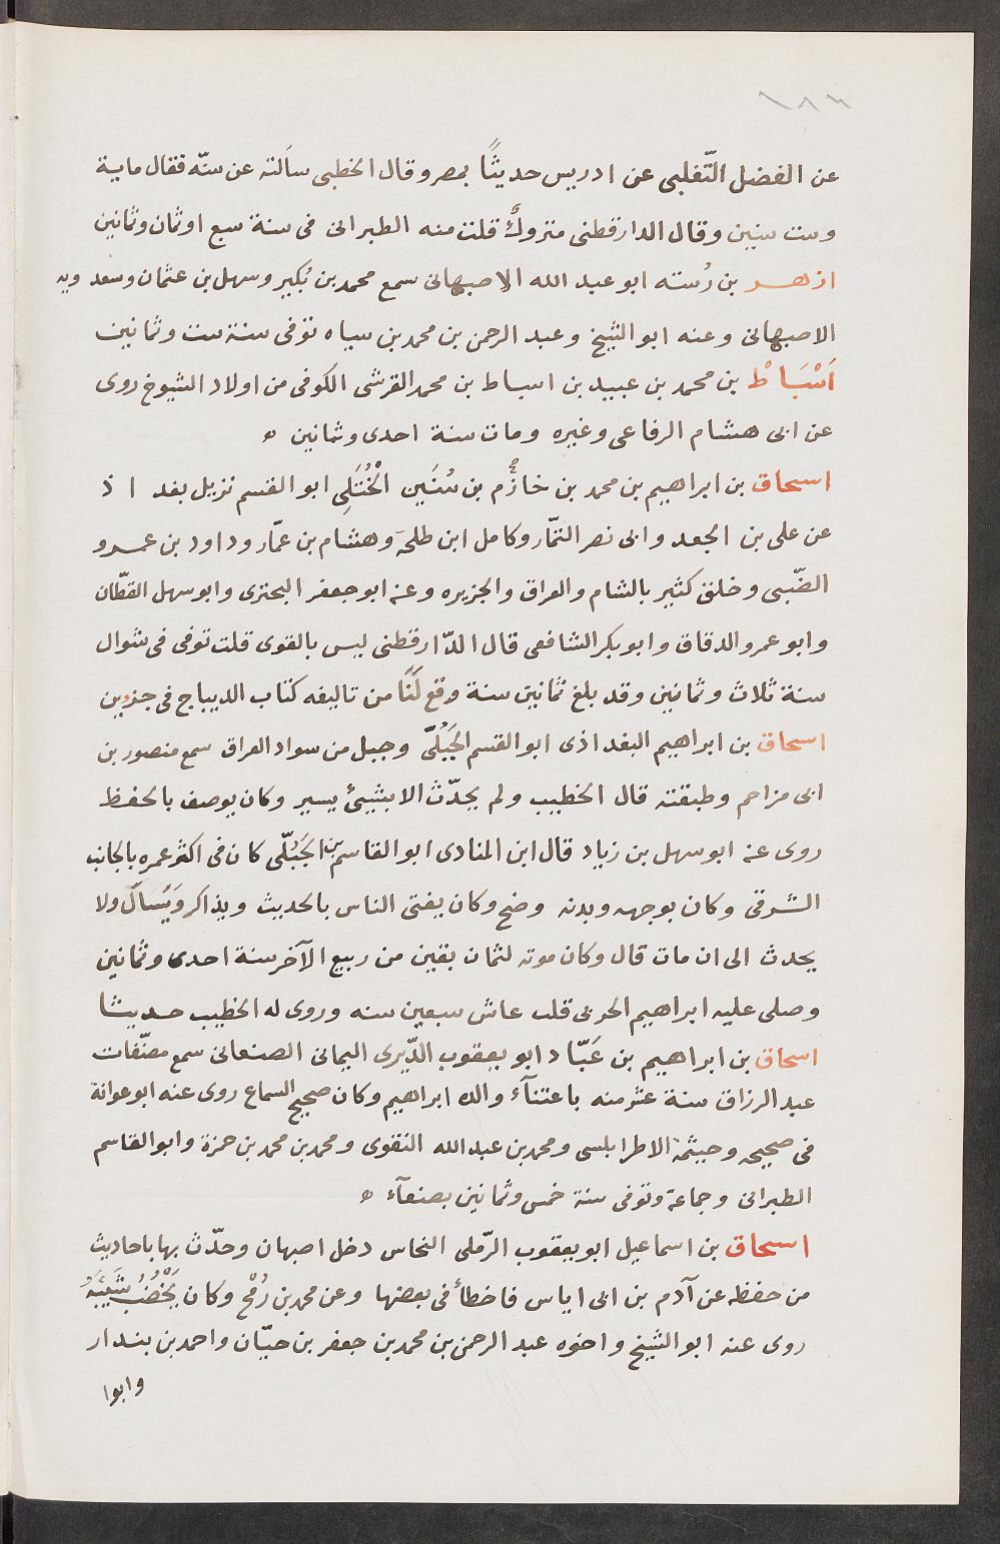 عن الفضل التّغلبى عن ادريس حديثًا بمصر وقال الخطبى سألته عن سنّه فقال ماية
وست سنين وقال الدارقطنى متروكٌ قلت منه الطبرانى فى سنة سبع اوثمان وثمانين
ازهر بن رُسته ابو عبد الله الاصبهانى سمع محمد بن بُكير وسهل بن عثمان وسعد ويه
الاصبهانى وعنه ابو الشيخ وعبد الرحمن بن محمد بن سياه توفى سنة ست وثمانين
اَسْبَاْط بن محمد بن عبيد بن اسباط بن محمد القرشى الكوفى من اولاد الشيوخ روى
عن ابى هشام الرفاعى وغيره ومات سنة احدى وثمانين ه
اسحاق بن ابراهيم بن محمد بن خازم بن سُنَين الْخُتَلِى ابو القسم نزيل بغد اذ
عن على بن الجعد وابى نصر التمّار وكامل ابن طلحة وهشام بن عمّار وداود بن عمرو
الضّبى وخلق كثير بالشام والعراق والجزيره وعنه ابو جعفر البحترى وابو سهل القطّان
وابو عمرو الدقاق وابو بكر الشافعى قال الدّارقطنى ليس بالقوى قلت توفى فى شوال
سنة ثلاث وثمانين وقد بلغ ثمانين سنة وقع لَنَا من تاليفه كتاب الديباج فى جزءين
اسحاق بن ابراهيم البغد اذى ابو القسم الجَبُلّى وجبل من سواد العراق سمع منصور بن
ابى مزاحم وطبقته قال الخطيب ولم يحدّث الا بشيئ يسير وكان يوصف بالحفظ
روى عنه ابو سهل بن زياد قال ابن المنادى ابو القاسم بن الجَبُلّى كان فى اكثر عمره بالجانب
الشرقى وكان بوجهه وبدنه وضح وكان يفتى الناس بالحديث ويذاكر وَيُسأل ولا
يحدث الى ان مات قال وكان موته لثمان بقين من ربيع الآخر سنة احدى وثمانين
وصلى عليه ابراهيم الحربى قلت عاش سبعين سنه وروى له الخطيب حديثا
اسحاق بن ابراهيم بن عَبّاد ابو يعقوب الدّبرى اليمانى الصنعانى سمع مصنّفات
عبد الرزاق سنة عشر منه باعتنآء والده ابراهيم وكان صحيح السماع روى عنه ابو عوانة
فى صحيحه وخيثمة الاطرابلسى ومحمد بن عبد الله النقوى ومحمد بن محمد بن حمزة وابو القاسم
الطبرانى وجماعة وتوفى سنة خمس وثمانين بصنعآء ه
اسحاق بن اسماعيل ابو يعقوب الرّملى النحاس دخل اصبهان وحدّث بها باحاديث
من حفظه عن آدم بن ابى اياس فاخطأ فى بعضها وعن محمد بن رُمْح وكان يَخْضُبُ شَيْبَهُ
روى عنه ابو الشيخ واخوه عبد الرحمن بن محمد بن جعفر بن حيّان واحمد بن بندار
وابوا